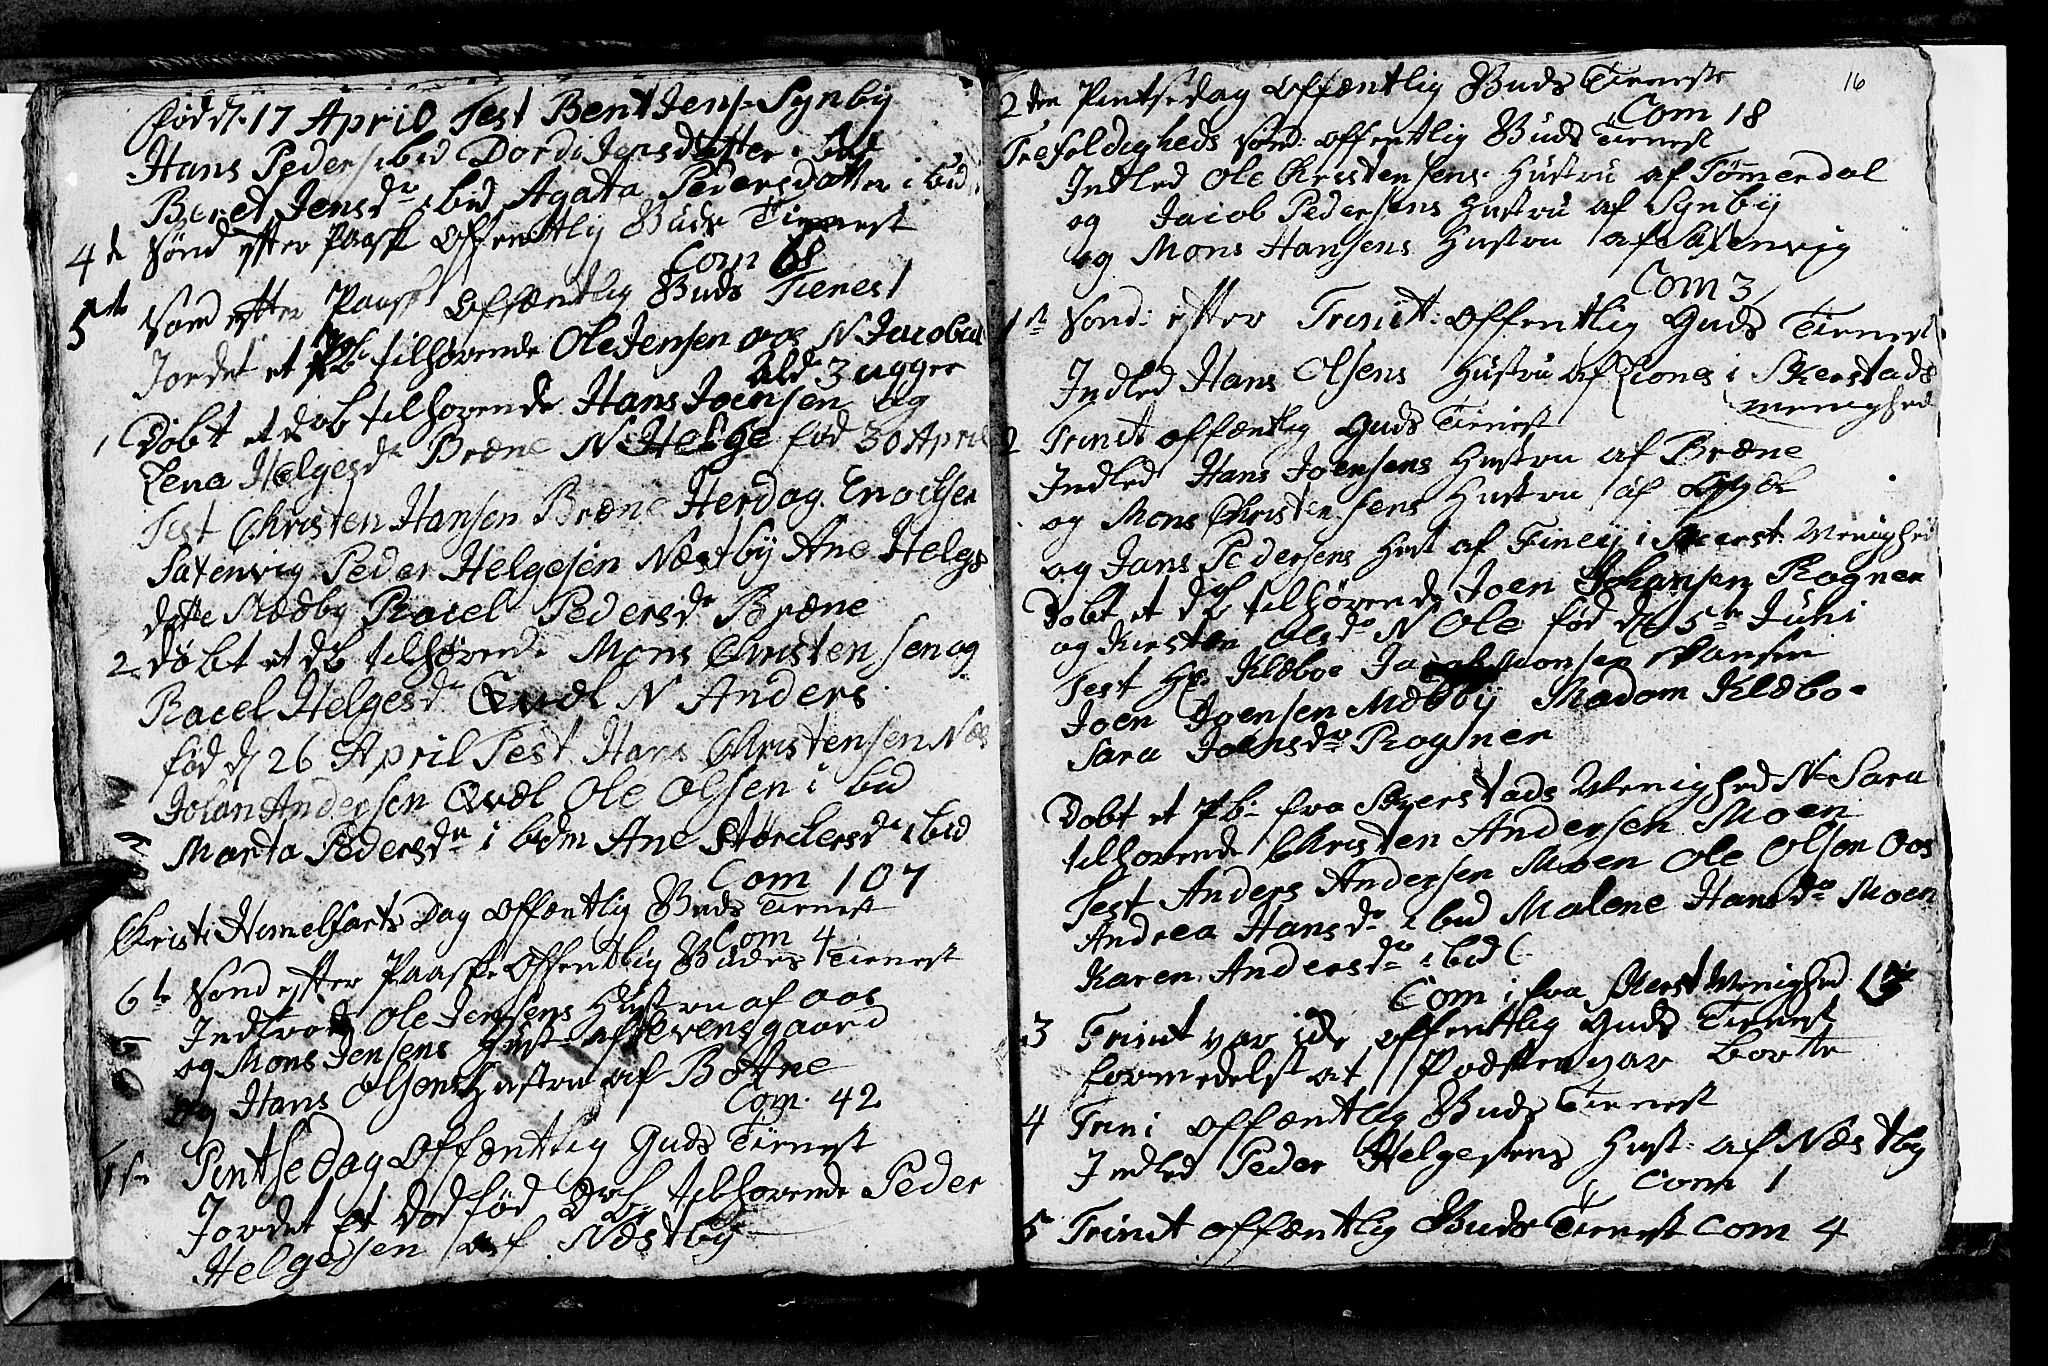 fød d. 17 April Test Bent Jens. Synby
Hans Peders. ibid Dordi Jensdatter. ibid
Beret Jensdr ibid Agata Pedersdatter ibid
4de Sønd efter Paaske offentlig Guds Tienest
Com 68
5te Sønd efter Paaske offentlig Guds Tienest
Jordet et Pb tilhørende Ole Jensen oos N. Jacobia
Ald 3 ugger
1 Døbt et db tilhørende Hans Joensen og
Lena Helgesdr Bræne N. Helge fød 30 April
Test Christen Hansen Bræne Herdag. Enochsen
Saxenvig Peder Helgesen Næstby Ane Helges
datte Mæby Racel Pedersdr Bræne
2 Døbt et db tilhørende Mons Christensen og
Racel Helgesdr Qvæl N Anders
fød d 26 April Test Hans Christensen Næs
Johan Andersen Qvæl Ole Olsen ibid
Marta Pedersdr ibdm Ane Størchersdr ibid
Com 107
Christi Himelfarts Dag offentlig Guds Tienest
Com 4
6te Sønd efter Paaske offentlig Guds Tienest
Ole Jensens Hustru af oos
og Mons Jensens Hust af Evensgaard
og Hans Olsens Hustru af Botne
Com. 42
1ste Pintsedag offentlig Guds Tienest
Jordet et Død fød db tilhørende Peder
Helgesen af Næstby
16
2den Pintsedag offentlig Guds Tieneste
Com 18
Trefoldigheds sønd: offentlig Guds Tienest
Indled Ole Christensens Hustru af Tømerdal
og Jacob Pedersens Hustru af Synby
og Mons Hansens Hustru af Saxenvig
Com 3
1ste Sønd: efter Trinit: offentlig Guds Tienest
Indled Hans Olsens Hustru af Lones i Skerstads
menighed
2 Trinit offentlig Guds Tienist
Indled Hans Joensens Hustru af Bræne
og Mons Christensens Hustru af Qvæl
og Jans Pedersens Hust af Finey i Skierst. Menighed
Døbt et db tilhørende Joen Johansen Rogner
og Kirsten Olsdr N Ole fød d 5te Juni
Test Hr. Klæboe Jacob Monsen
Joen Joensen Mæbby Madam Klæboe
Sara Joensdr Rogner
Døbt et Pb. fra Skerstads Menighed N. Sara
tilhørende Christen Andersen Moen
Test Anders Andersen Moen Ole Olsen Oos
Andrea Hansdr ibid Malene Hansdr Moen
Karen Andersdr ibid
Com i fra Skerst Menighed
3 Trinit var ide offentlig Guds Tienest
formedelst at Præsten var borte
4 Trini offentlig Guds Tienest
Indled Peder Helgesens Hust: af Næstby
Com 1
5 Trinit offentlig Guds Tienest Com 4